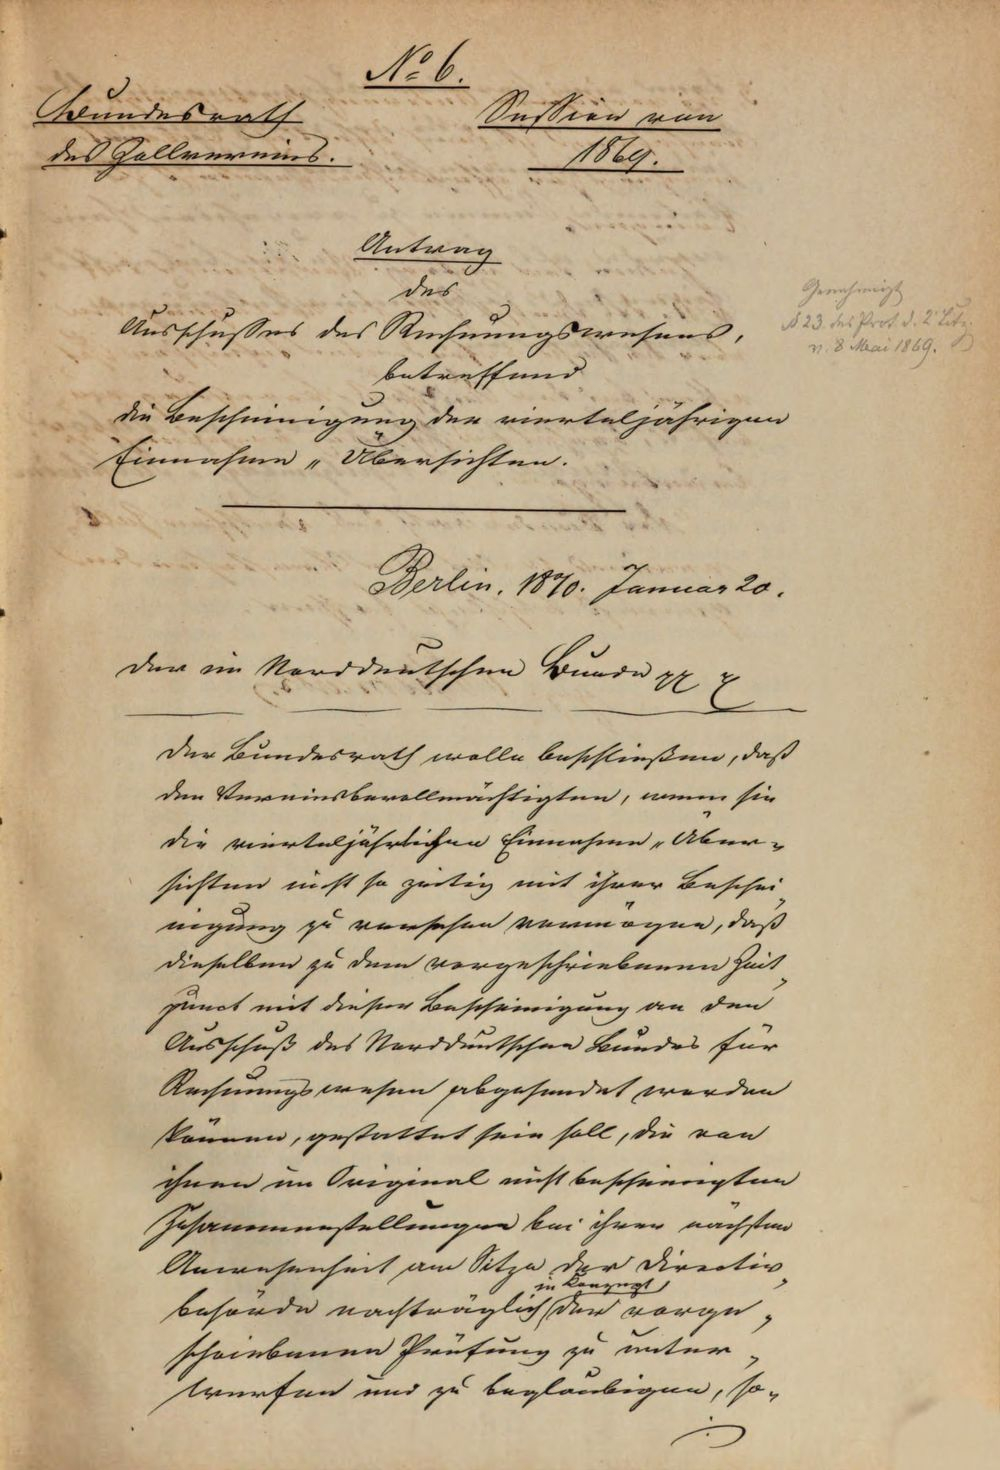 No 6.
Bundesrath
des Zollvereins.
Session von
1869.
Antrag
des
Ausschusses des Rechnungswesens,
betreffend
die Bescheinigung der vierteljährigen
Einnahme „ Übersichten.
Genehmigt
§ 23. des Prot. d. 2 Sitz.
v. 8 Mai 1869.
Berlin. 1870. Januar 20.
Der im Norddeutschen Bunde
Der Bundesrath wolle beschließen, daß
den Vereinsbevollmächtigten, wenn sie
die vierteljährlichen Einnahme „ Über-
sichten nicht so zeitig mit ihrer Beschei
nigung zu versehen vermögen, daß
dieselben zu dem vorgeschriebenen Zeit
punct mit dieser Bescheinigung an den
Ausschuß des Norddeutschen Bundes für
Rechnungswesen abgesendet werden
können, gestattet sein soll, die von
ihnen im Original nicht bescheinigten
Zusammenstellungen bei ihrer nächsten
Anwesenheit am Sitze der Directiv
in Concept
behörde nachträglich der vorge„
schriebenen Prüfung zu unter„
werfen und zu beglaubigen, so„